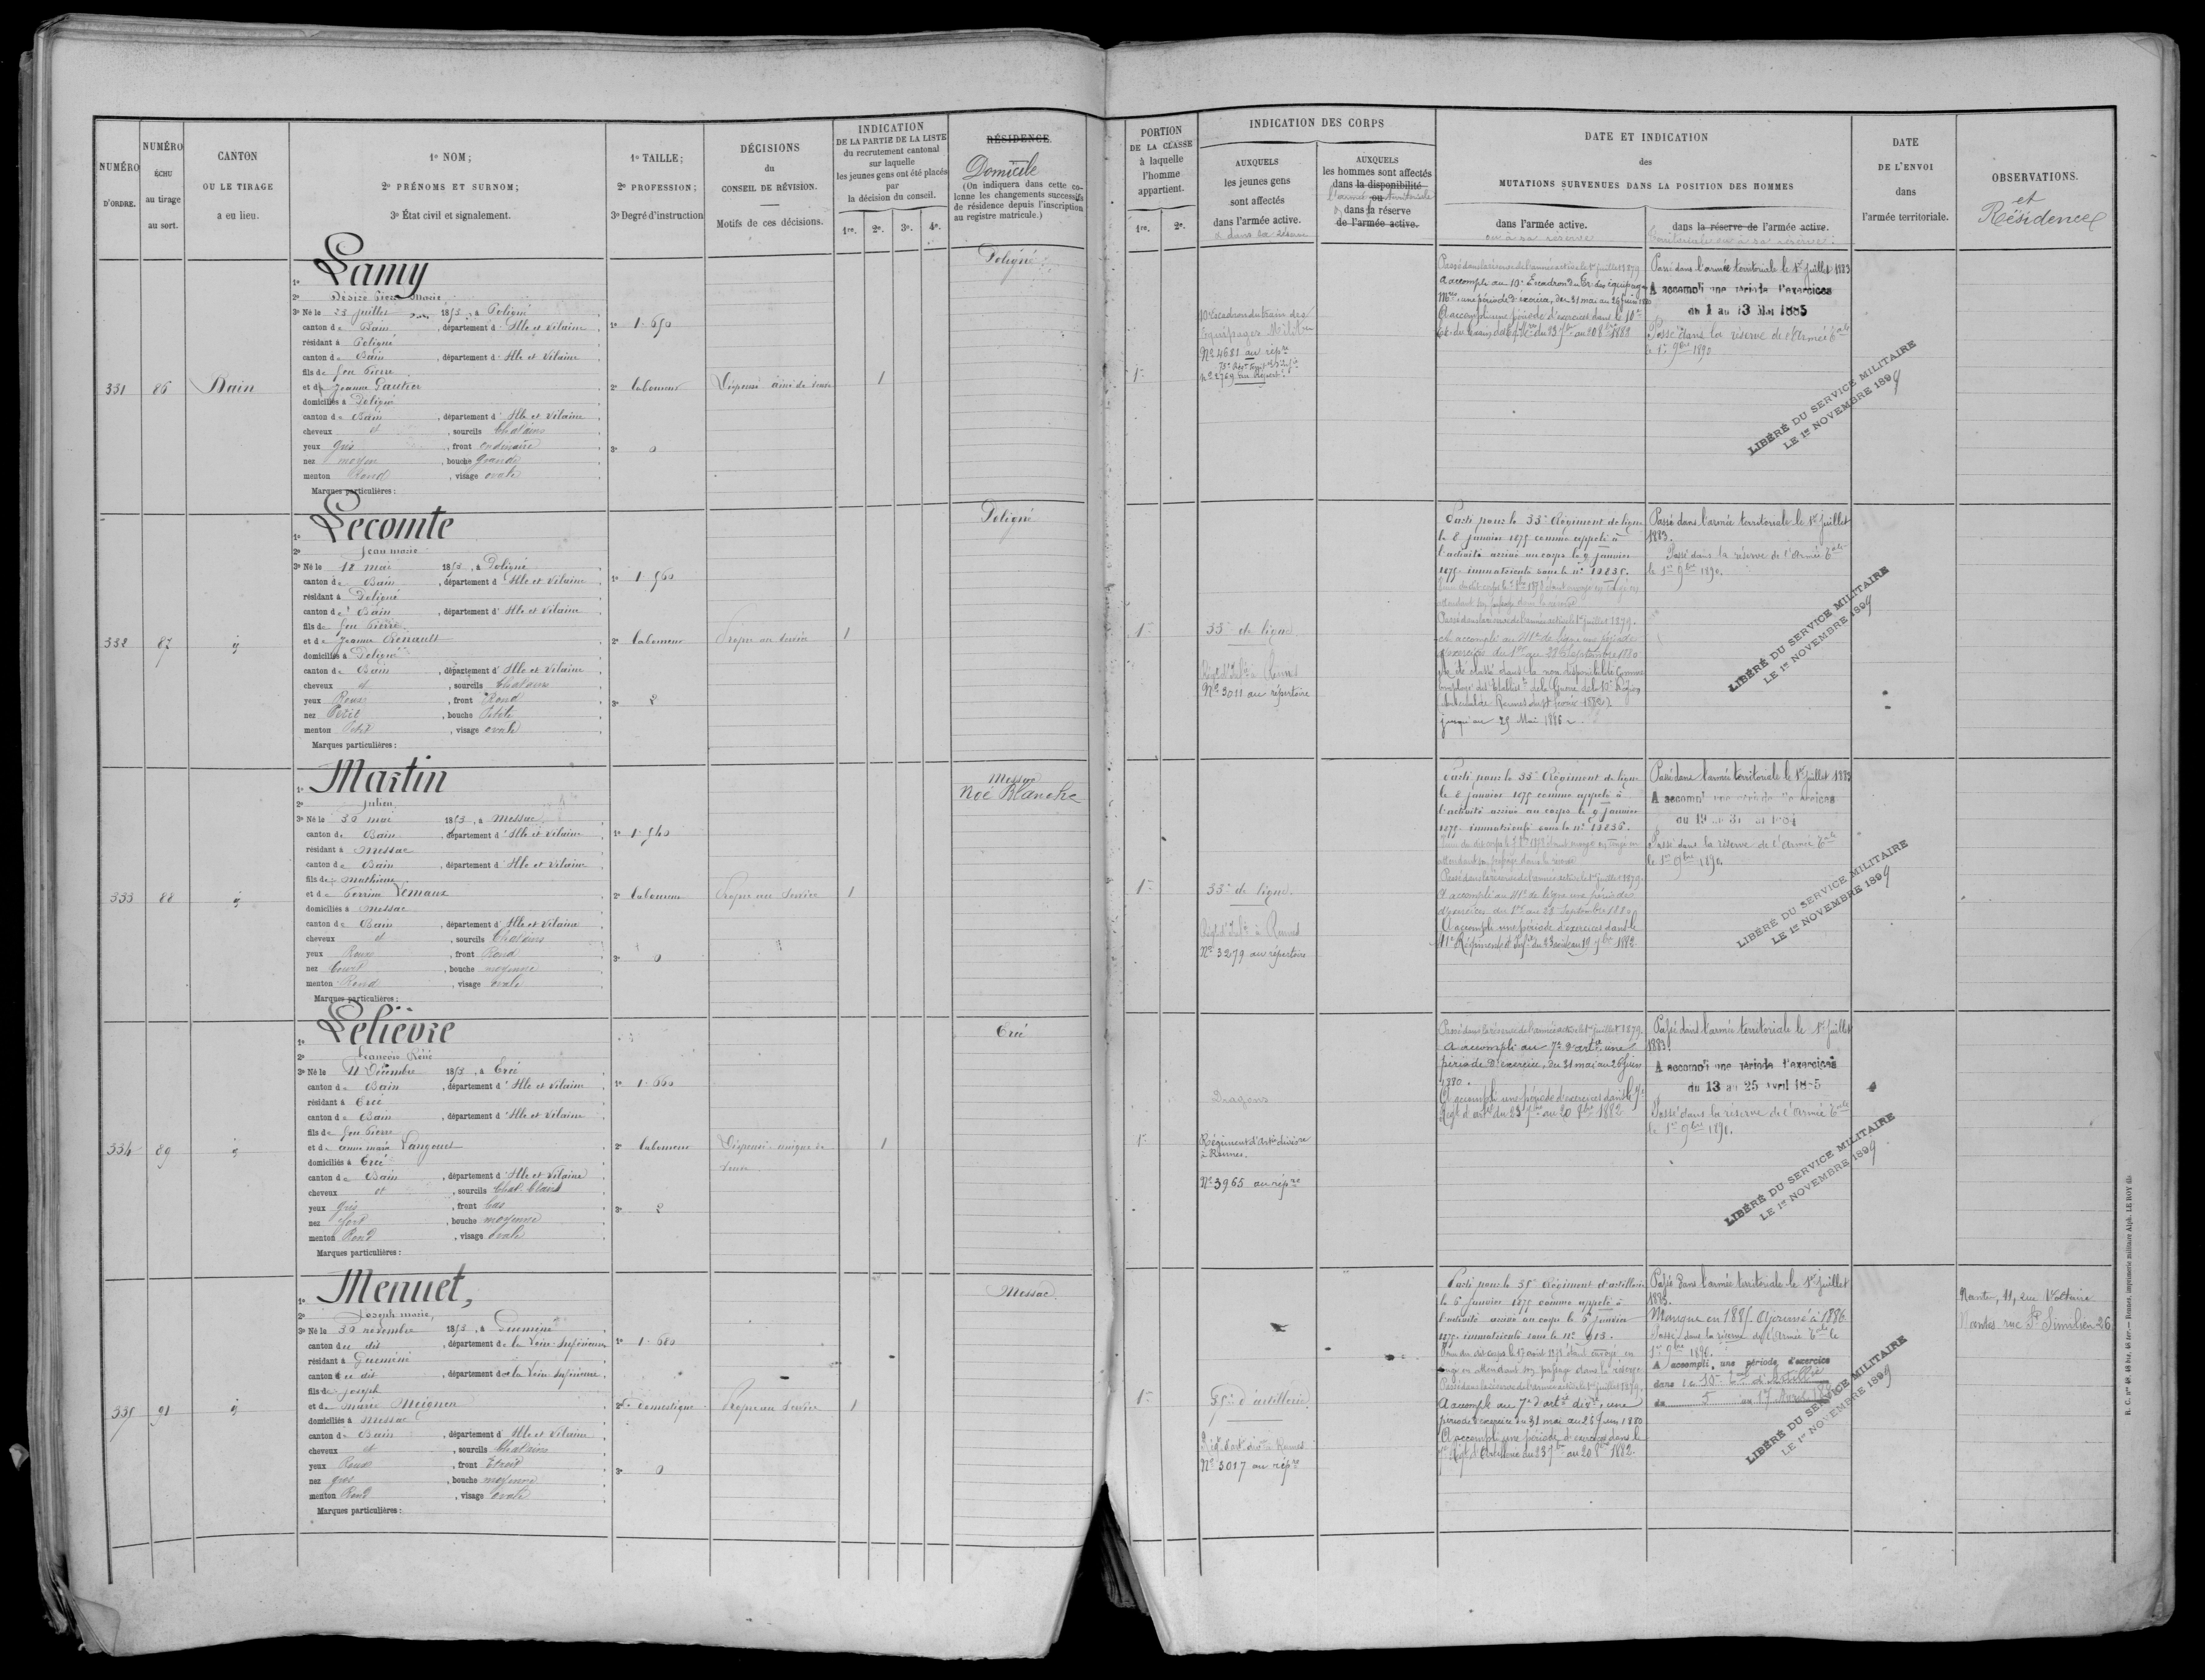 NUMÉRO
D'ORDRE.
NUMÉRO
ÉCHU
au tirage
au sort.
CANTON
OU LE TIRAGE
a eu lieu.
1º NOM;
2º PRÉNOMS ET SURNOM;
3º État civil et signalement.
1º TAILLE;
2º PROFESSION;
3º Degré d'instruction
DÉCISIONS
du
CONSEIL DE RÉVISION.
Motifs de ces décisions.
INDICATION
DE LA PARTIE DE LA LISTE
du recrutement cantonal
sur laquelle
les jeunes gens ont été placés
par
la décision du conseil.
1re. 2e. 3e. 4e.
RÉSIDENCE.
Domicile
(On indiquera dans cette co-
lonne les changements successifs
de résidence depuis l'inscription
au registre matricule.)
331
86
Bain
1º Lamy
2º Désiré Pierre Marie
3º Né le 23 juillet 1853, à Poligné
canton de Bain, département d'Ille et Vilaine
résidant à Poligné
canton de Bain, département d'Ille et Vilaine
fils de feu Pierre
et de Jeanne Gautier
domiciliés à Poligné
canton de Bain, département d'Ille et Vilaine
cheveux et, sourcils Chatains
yeux gris, front ordinaire
nez moyen, bouche grande
menton Rond, visage ovale
Marques particulières:
1º 1.650
2º laboureur
3º 0
Dispensé ainé de veuve
1
Poligné
332
87
id
1º Lecomte
2º Jean marie
3º Né le 18 mai 1853, à Poligné
canton de Bain, département d'Ille et Vilaine
résidant à Poligné
canton de Bain, département d'Ille et Vilaine
fils de feu Pierre
et de Jeanne Renault
domiciliés à Poligné
canton de Bain, département d'Ille et Vilaine
cheveux et, sourcils Chatains
yeux Roux, front Rond
nez Petit, bouche Petite
menton Petit, visage ovale
Marques particulières:
1º 1.560
2º laboureur
3º 2
Propre au service
1
Poligné
333
88
id
1º Martin
2º Julien
3º Né le 30 mai 1853, à Messac
canton de Bain, département d'Ille et Vilaine
résidant à Messac
canton de Bain, département d'Ille et Vilaine
fils de Mathurin
et de Perrine
domiciliés à Messac
canton de Bain, département d'Ille et Vilaine
cheveux et, sourcils Chatains
yeux Roux, front Rond
nez Court, bouche moyenne
menton Rond, visage ovale
Marques particulières:
1º 1.540
2º laboureur
3º 0
Propre au service
1
Messac
Noë Blanche
334
89
id
1º Lelièvre
2º François René
3º Né le 11 Décembre 1853, à Ercé
canton de Bain, département d'Ille et Vilaine
résidant à Ercé
canton de Bain, département d'Ille et Vilaine
fils de feu Pierre
et de anne marie Langouet
domiciliés à Ercé
canton de Bain, département d'Ille et Vilaine
cheveux et, sourcils Chat. blond
yeux gris, front bas
nez fort, bouche moyenne
menton Rond, visage ovale
Marques particulières:
1º 1.660
2º laboureur
3º 2
Dispensé unique de
veuve
1
Ercé
335
91
id
1º Menuet,
2º Joseph marie,
3º Né le 30 novembre 1853, à Guéméné
canton du dit, département de la Loire-Inférieure
résidant à Guéméné
canton du dit, département de la Loire-Inférieure
fils de Joseph
et de Marie Meignen
domiciliés à Messac
canton de Bain, département d'Ille et Vilaine
cheveux et, sourcils Chatains
yeux Roux, front Etroit
nez gros, bouche moyenne
menton Rond, visage ovale
Marques particulières:
1º 1.680
2º domestique
3º 0
Propre au service
1
Messac
PORTION
DE LA CLASSE
à laquelle
l'homme
appartient.
1re. 2e.
INDICATION DES CORPS
AUXQUELS
les jeunes gens
sont affectés
dans l'armée active.
& dans la réserve
AUXQUELS
les hommes sont affectés
dans la disponibilité
l'armée territoriale
ou
dans la réserve
de l'armée active.
DATE ET INDICATION
des
MUTATIONS SURVENUES DANS LA POSITION DES HOMMES
dans l'armée active.
ou à sa réserve
dans la réserve de l'armée active.
territoriale ou à sa réserve.
DATE
DE L'ENVOI
dans
l'armée territoriale.
OBSERVATIONS.
et
Résidences
1re
10e Escadron du train des
Equipages Milit.res
Nº 4681 au rép.re
Passé dans la réserve de l'armée active le 1er Juillet 1879
A accompli au 10e Escadron du tr. des équipages
M.res une période d'exercice, du 31 mai au 26 juin 1880
A accompli une période d'exercices dans le 10e
Passé dans l'armée territoriale le 1er Juillet 1883
A accompli une période d'exercices
du 1 au 13 Mai 1885
Passé dans la réserve de l'Armée T.ale
le 1er 9bre 1890
LIBÉRÉ DU SERVICE MILITAIRE
LE 1er NOVEMBRE 1899
1re
33e de ligne
Nº 3011 au répertoire
Parti pour le 33e Régiment de ligne
le 8 janvier 1875 comme appelé à
l'activité arrivé au corps le 9 janvier
1875 immatriculé sous le nº 10835.
Passé dans la réserve de l'armée active le 1er Juillet 1879.
A accompli au 41e de ligne une période
d'exercice du 1er au 28 Septembre 1880
jusqu'au 25 Mai 1886
Passé dans l'armée territoriale le 1er Juillet
1883.
Passé dans la réserve de l'Armée T.ale
le 1er 9bre 1890.
LIBÉRÉ DU SERVICE MILITAIRE
LE 1er NOVEMBRE 1899
1re
33e de ligne
Rég.t d'Inf.ie à Rennes
Nº 3279 au répertoire
Parti pour le 33e Régiment de ligne
le 8 janvier 1875 comme appelé à
l'activité arrivé au corps le 9 janvier
1875 immatriculé sous le nº 10836.
Passé dans la réserve de l'armée active le 1er juillet 1879
A accompli au 41e de ligne une période
d'exercices du 1er au 28 Septembre 1880
A accompli une période d'exercices dans le
41e Régiment d'Inf.ie du 23 août au 19 7bre 1882
Passé dans l'armée territoriale le 1er Juillet 1883
A accompli une période d'exercices
du 19 au 31 mai 1884
Passé dans la réserve de l'Armée T.ale
le 1er 9bre 1890.
LIBÉRÉ DU SERVICE MILITAIRE
LE 1er NOVEMBRE 1899
1re
Dragons
Régiment d'Art.ie division.re
à Rennes.
Nº 3965 au rép.re
Passé dans la réserve de l'armée active le 1er Juillet 1879.
A accompli au 7e d'art.ie une
période d'exercice, du 31 mai au 26 Juin
1880.
A accompli une période d'exercices dans le 7e
Reg.t d'art.ie du 23 7bre au 20 8bre 1882
Passé dans l'armée territoriale le 1er Juillet
1883.
A accompli une période d'exercices
du 13 au 25 avril 1885
Passé dans la réserve de l'Armée T.ale
le 1er 9bre 1890.
LIBÉRÉ DU SERVICE MILITAIRE
LE 1er NOVEMBRE 1899
1re
35e d'artillerie
Nº 3017 au rép.re
Parti pour le 35e Régiment d'artillerie
le 6 janvier 1875 comme appelé à
l'activité arrivé au corps le 6 janvier
1875 immatriculé sous le nº 913.
Passé dans la réserve de l'armée active le 1er juillet 1879.
A accompli au 7e d'art.ie div.re, une
période d'exercice du 31 mai au 26 Juin 1880
A accompli une période d'exercices dans le
7e Rég.t d'Artillerie du 23 7bre au 20 8bre 1882.
Passé dans l'armée territoriale le 1er Juillet
1883.
Manque en 1885 Ajourné à 1886
Passé dans la réserve de l'Armée T.ale le
1er 9bre 1890.
A accompli, une période d'exercice
dans le 10e T.al d'Artillerie
du 5 au 17 Avril
LIBÉRÉ DU SERVICE MILITAIRE
LE 1er NOVEMBRE 1899
Nantes, 11, rue Voltaire
Nantes rue St Similien 26
R. C. nos 48, 48 bis, 48 ter. — Rennes, imprimerie militaire Alph. LE ROY fils